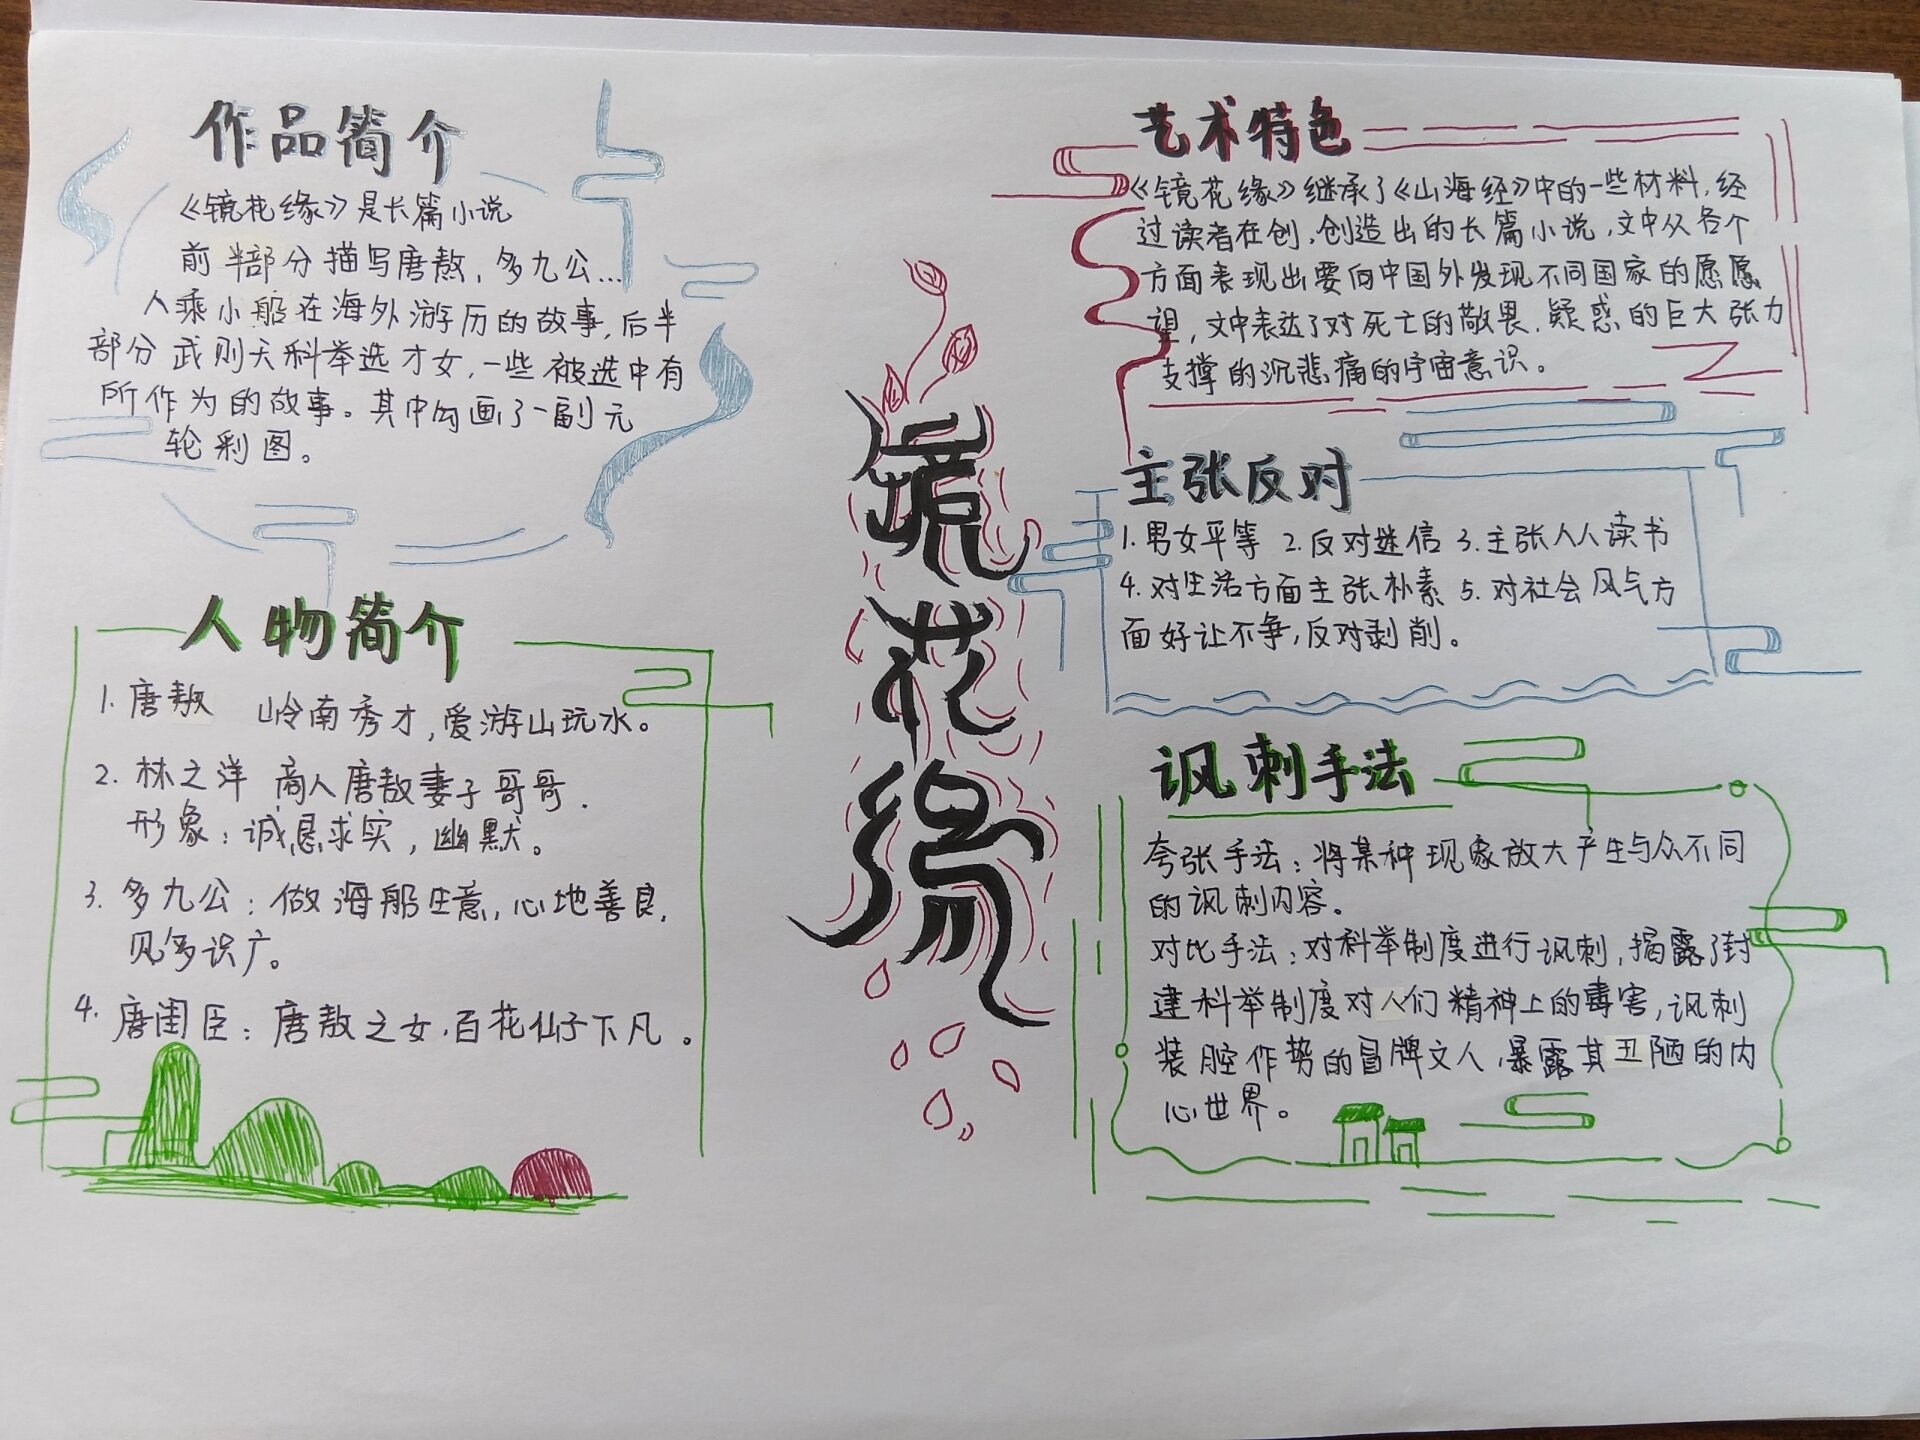 作品简介
《镜花缘》是长篇小说
前半部分描写唐敖，多九公...
人乘小船在海外游历的故事，后半
部分武则天科举选才女，一些被选中有
所作为的故事。其中勾画了一副元
轮彩图。
人物简介
1. 唐敖 岭南秀才，爱游山玩水。
2. 林之洋 商人唐敖妻子哥哥.
形象：诚恳求实，幽默。
3. 多九公：做海船生意，心地善良，
见多识广。
4. 唐闺臣：唐敖之女，百花仙子下凡。
镜花缘
艺术特色
《镜花缘》继承了《山海经》中的一些材料，经
过读者在创，创造出的长篇小说，文中从各个
方面表现出要向中国外发现不同国家的愿愿
望，文中表达了对死亡的敬畏，疑惑的巨大张力
支撑的沉悲痛的宇宙意识。
主张反对
1. 男女平等 2. 反对迷信 3. 主张人人读书
4. 对生活方面主张朴素 5. 对社会风气方
面好让不争，反对剥削。
讽刺手法
夸张手法：将某种现象放大产生与众不同
的讽刺内容。
对比手法：对科举制度进行讽刺，揭露了封
建科举制度对人们精神上的毒害，讽刺
装腔作势的冒牌文人，暴露其丑陋的内
心世界。